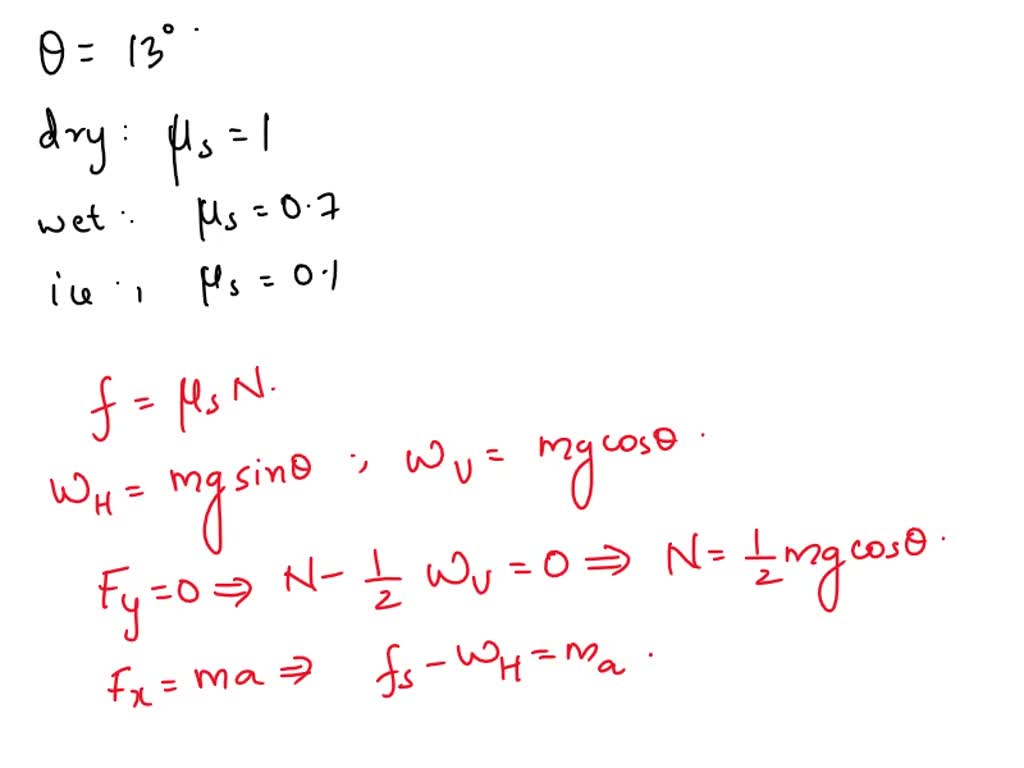 θ = 13°
dry: μs = 1
wet: μs = 0.7
ice: μs = 0.1
f = μs N.
WH = mg sinθ ; WV = mg cosθ.
Fy = 0 ⇒ N - 1/2 WV = 0 ⇒ N = 1/2 mg cosθ.
Fx = ma ⇒ fs - WH = ma.